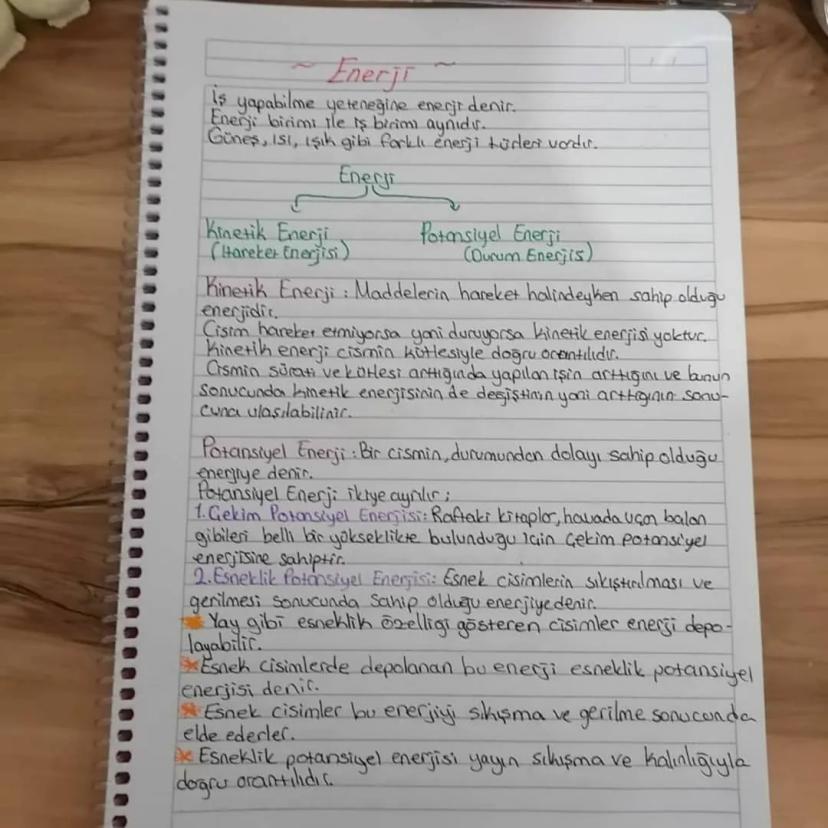 ~ Enerji ~
İş yapabilme yeteneğine enerji denir.
Enerji birimi ile iş birimi aynıdır.
Güneş, ısı, ışık gibi farklı enerji türleri vardır.
Enerji
Kinetik Enerji Potansiyel Enerji
(Hareket Enerjisi) (Durum Enerjis)
Kinetik Enerji : Maddelerin hareket halindeyken sahip olduğu
enerjidir.
Cisim hareket etmiyorsa yani duruyorsa kinetik enerjisi yoktur.
Kinetik enerji cismin kütlesiyle doğru orantılıdır.
Cismin sürati ve kütlesi arttığında yapılan işin arttığını ve bunun
sonucunda kinetik enerjisinin de değiştinin yani arttığının sonu-
cuna ulaşılabilinir.
Potansiyel Enerji : Bir cismin, durumundan dolayı sahip olduğu
energiye denir.
Potansiyel Enerji ikiye ayrılır ;
1. Çekim Potansiyel Enerjisi : Raftaki kitaplar, havada uçan balon
gibileri belli bir yükseklikte bulunduğu için çekim potansiyel
enerjisine sahiptir.
2. Esneklik Potansiyel Enerjisi : Esnek cisimlerin sıkıştırılması ve
gerilmesi sonucunda sahip olduğu enerjiye denir.
* Yay gibi esneklik özelliği gösteren cisimler enerji depo-
layabilir.
* Esnek cisimlerde depolanan bu enerji esneklik potansiyel
enerjisi denir.
* Esnek cisimler bu enerjiyi sıkışma ve gerilme sonucunda
elde ederler.
* Esneklik potansiyel enerjisi yayın sıkışma ve kalınlığıyla
doğru orantılıdır.